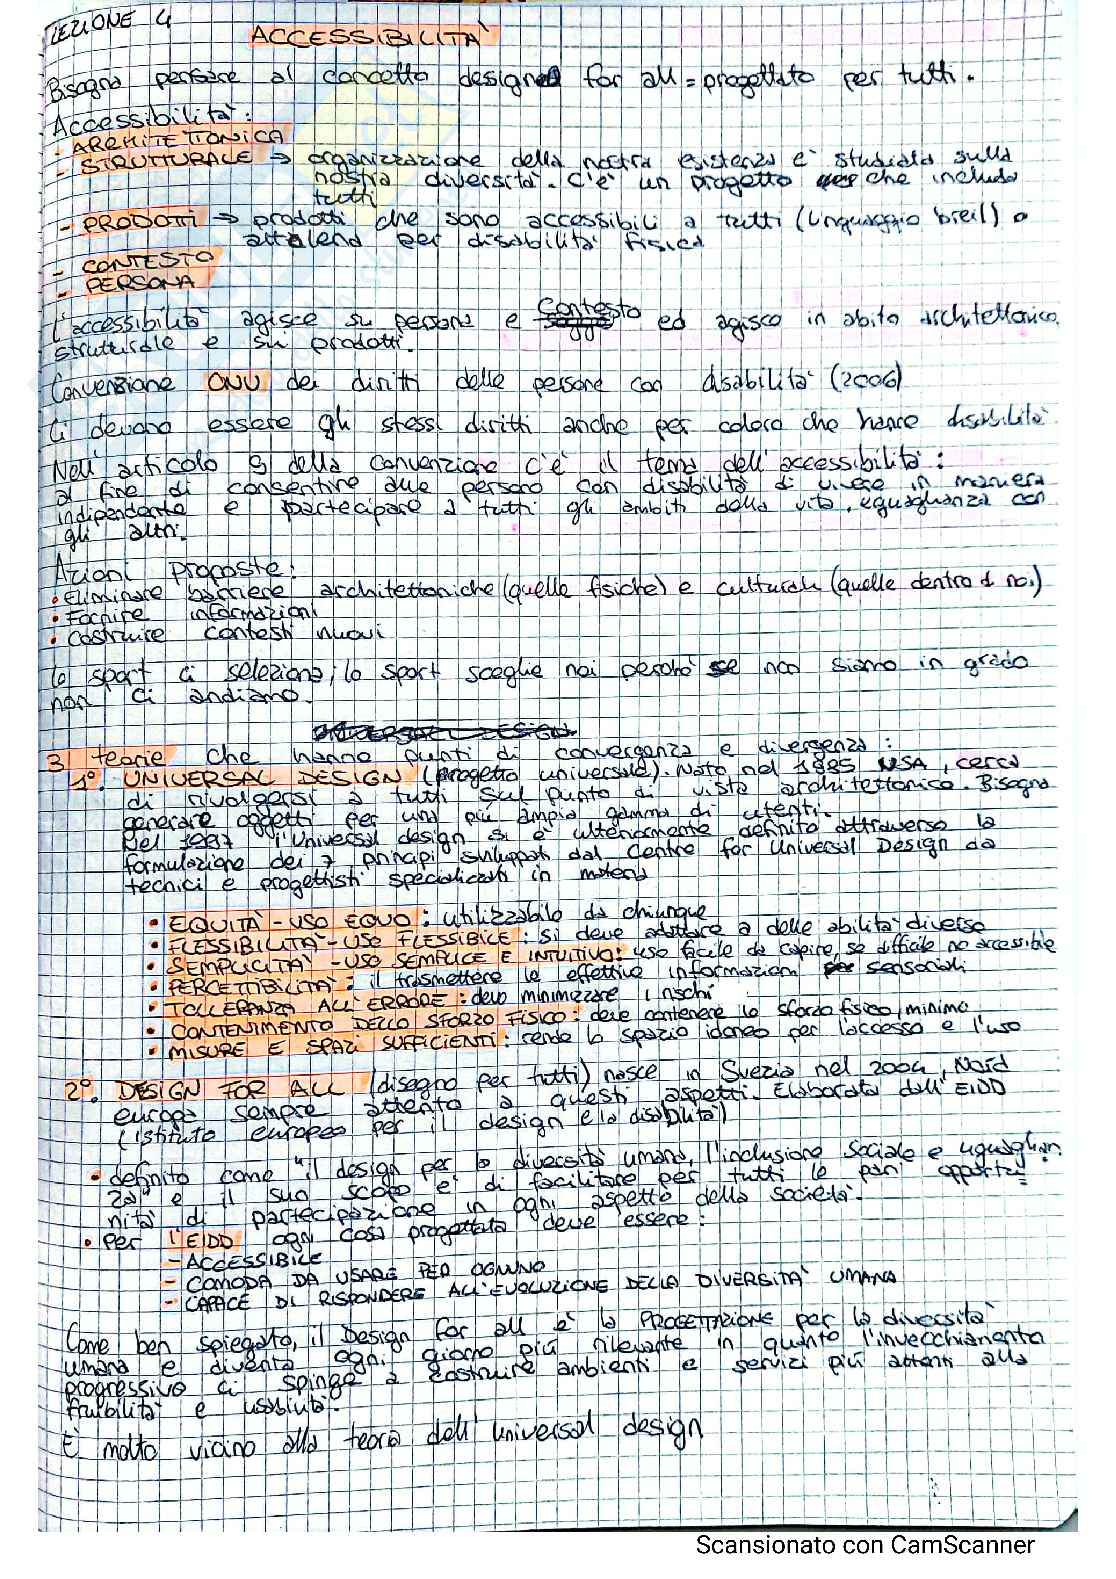 LEZIONE 4
ACCESSIBILITÀ
Bisogna pensare al concetto designed for all = progettato per tutti.
Accessibilità:
- ARCHITETTONICA
- STRUTTURALE → organizzazione della nostra esistenza e' studiata sulla
nostra diversità. C'è un progetto che includa
tutti
- PRODOTTI → prodotti che sono accessibili a tutti (linguaggio breil) o
altalena per disabilità fisica
- CONTESTO
- PERSONA
L'accessibilità agisce su persona e contesto ed agisco in abito architettonico,
strutturale e sui prodotti.
Convenzione ONU dei diritti delle persone con disabilità (2006)
Ci devono essere gli stessi diritti anche per coloro che hanno disabilità
Nell'articolo 9 della convenzione c'è il tema dell'accessibilità:
al fine di consentire alle persone con disabilità di vivere in maniera
indipendente e partecipare a tutti gli ambiti della vita, eguaglianza con
gli altri.
Azioni proposte:
• Eliminare barriere architettoniche (quelle fisiche) e culturali (quelle dentro di noi)
• Fornire informazioni
• Costruire contesti nuovi
Lo sport ci seleziona; lo sport sceglie noi perchè se non siamo in grado
non ci andiamo.
3 teorie che hanno punti di convergenza e divergenza:
1°. UNIVERSAL DESIGN (progetto universale). Nato nel 1985 USA, cerca
di rivolgersi a tutti sul punto di vista architettonico. Bisogna
generare oggetti per una più ampia gamma di utenti.
Nel 1997 l'Universal design si è ulteriormente definito attraverso la
formulazione dei 7 principi sviluppati dal Centre for Universal Design da
tecnici e progettisti specializzati in materia
• EQUITÀ - USO EQUO: utilizzabile da chiunque
• FLESSIBILITÀ - USO FLESSIBILE: si deve adattare a delle abilità diverse
• SEMPLICITÀ - USO SEMPLICE E INTUITIVO: uso facile da capire, se difficile no accessibile
• PERCETTIBILITÀ: il trasmettere le effettive informazioni sensoriali
• TOLLERANZA ALL'ERRORE: devo minimizzare i rischi
• CONTENIMENTO DELLO SFORZO FISICO: deve contenere lo sforzo fisico, minimo
• MISURE E SPAZI SUFFICIENTI: rende lo spazio idoneo per l'accesso e l'uso
2°. DESIGN FOR ALL (disegno per tutti) nasce in Svezia nel 2004, Nord
europa sempre attento a questi aspetti. Elaborata dall'EIDD
(istituto europeo per il design e la disabilità)
• definito come "il design per la diversità umana, l'inclusione sociale e uguaglian
za" e il suo scopo è di facilitare per tutti le pari opportu
nità di partecipazione in ogni aspetto della società.
• Per l'EIDD ogni cosa progettata deve essere:
- ACCESSIBILE
- COMODA DA USARE PER OGNUNO
- CAPACE DI RISPONDERE ALL'EVOLUZIONE DELLA DIVERSITÀ UMANA
Come ben spiegato, il Design for all è la PROGETTAZIONE per la diversità
umana e diventa ogni giorno più rilevante in quanto l'invecchiamento
progressivo ci spinge a costruire ambienti e servizi più attenti alla
fruibilità e usabilità.
È molto vicino alla teoria dell'universal design
Scansionato con CamScanner